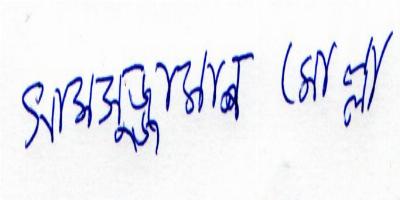 সামসুজ্জামান মোল্লা